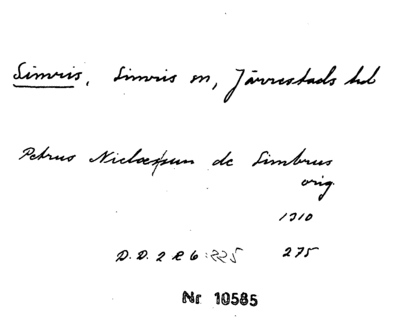 Simris, Simris sn, Järrestads hd
Petrus Niclæssun de Simbrus
orig.
1310
D. D. 2 R 6:225 275
Nr 10585